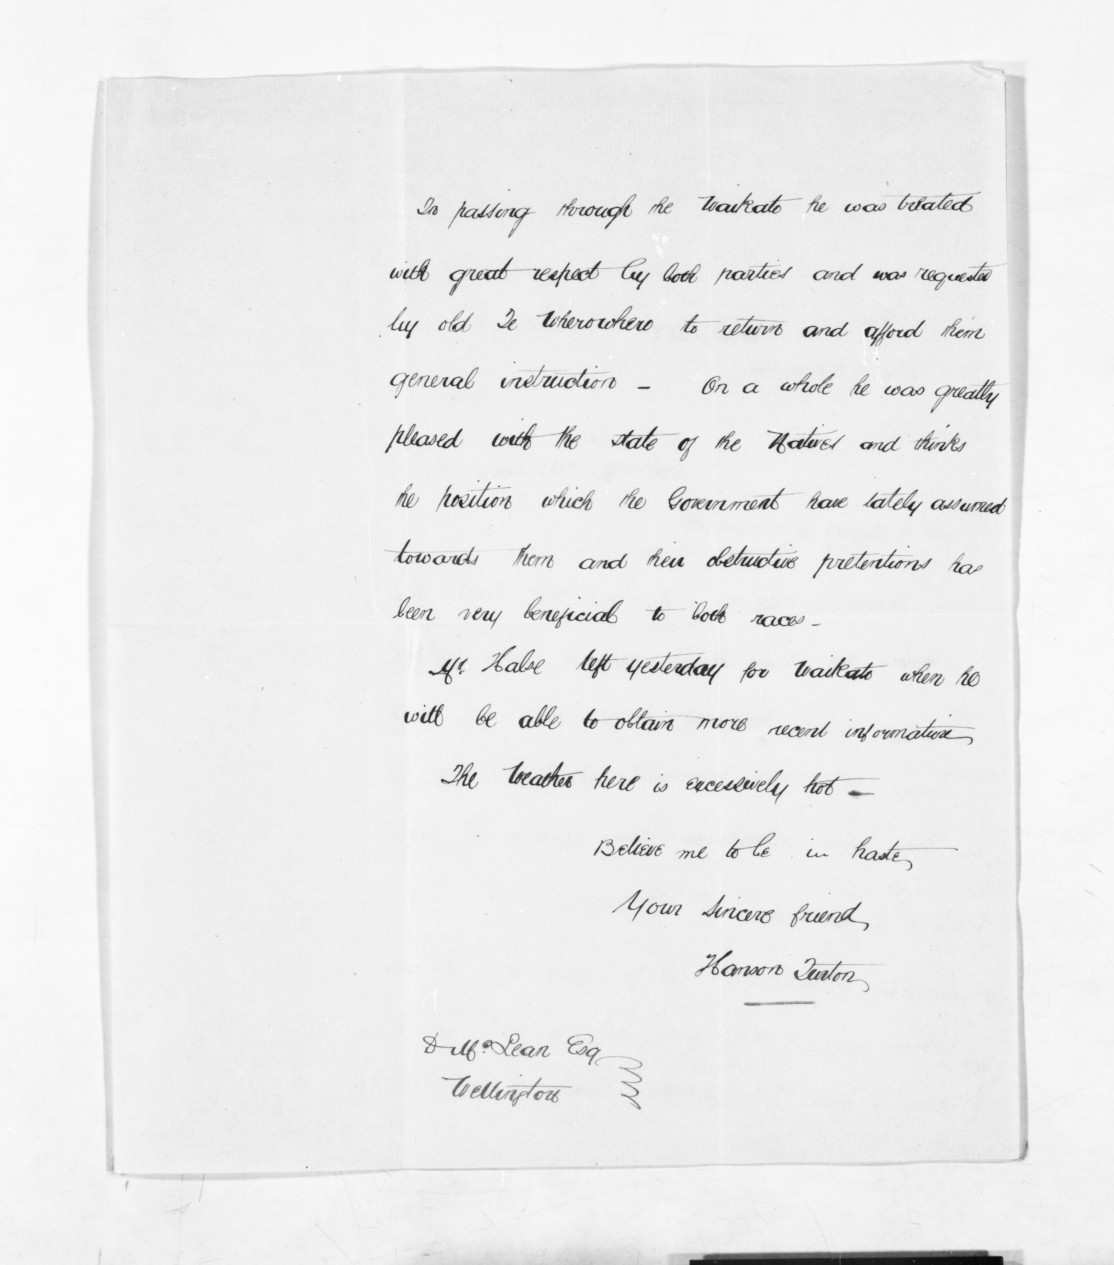 In passing through the Waikato he was treated
with great respect by both parties and was requested
by old Te Wherowhero to return and afford them
general instruction - On a whole he was greatly
pleased with the state of the Natives and thinks
the position which the Government have lately assumed
towards them and their obstructive pretentions has
been very beneficial to both races -
Mr. Halse left yesterday for Waikato when he
will be able to obtain more recent information,
The Weather here is excessively hot -
Believe me to be in haste,
Your Sincere friend,
Hanson Turton,
D McLean Esq
Wellington